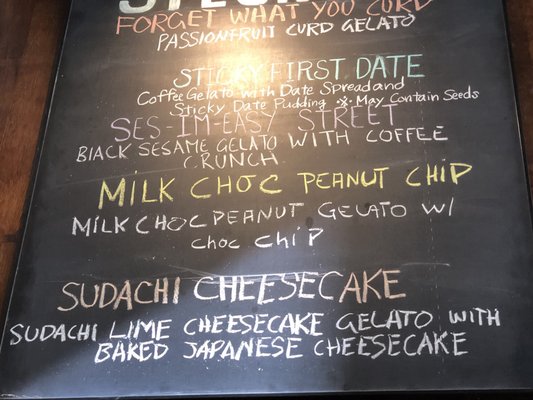 FORGET WHAT YOU CURD
PASSIONFRUIT CURD GELATO
STICKY FIRST DATE
Coffee Gelato with Date Spread and
Sticky Date Pudding ※ May Contain Seeds
SES-IM-EASY STREET
BLACK SESAME GELATO WITH COFFEE
CRUNCH
MILK CHOC PEANUT CHIP
MILK CHOC PEANUT GELATO W/
CHOC CHIP
SUDACHI CHEESECAKE
SUDACHI LIME CHEESECAKE GELATO WITH
BAKED JAPANESE CHEESECAKE